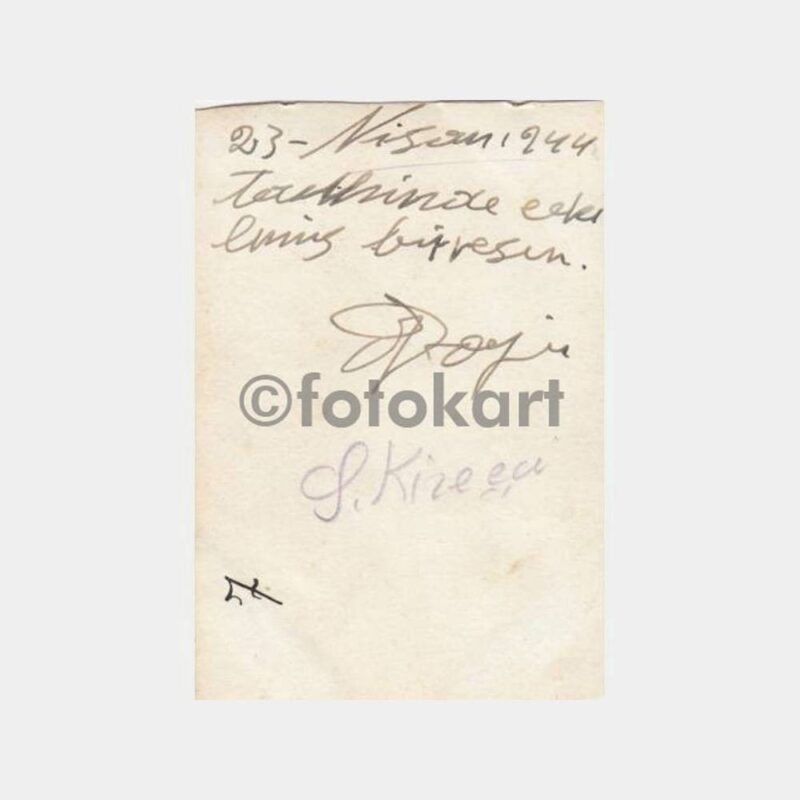 23- Nisan 1944
tarihinde çeki
lmiş bir resim.
©fotokart
S. Kireççi